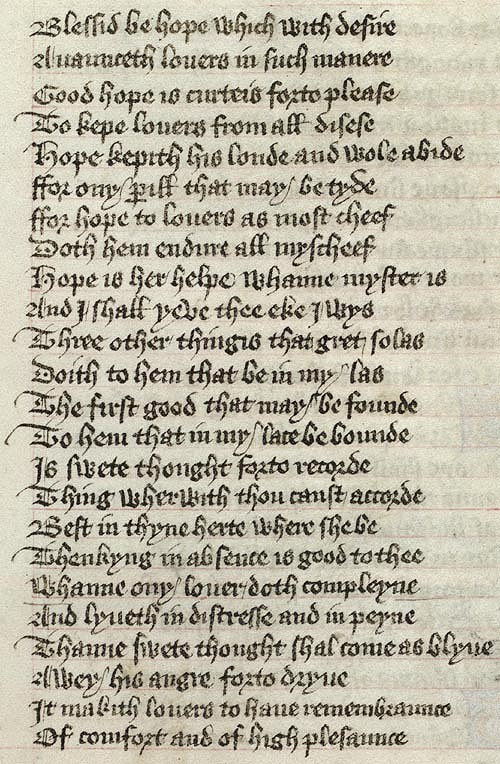 Blessid be hope which with desire
Auaunceth louers in such manere
Good hope is curteis forto please
To kepe louers from all disese
Hope kepith his londe and wole abide
ffor ony / perill that may / betyde
ffor hope to louers as most cheef
Doth hem endure all myscheef
Hope is her helpe whanne myster is
And I shall yeve thee eke I wys
Three other thingis that gret solas
Doith to hem that be in my / las
The first good that may / be founde
To hem that in my / lace be bounde
Is swete thought forto recorde
Thing wherwith thou canst accorde
Best in thyne herte where she be
Thenkyng in absence is good to thee
Whanne ony / louer doth compleyne
And lyueth in distresse and in peyne
Thanne swete thought shal come as blyue
Awey / his angre forto dryue
It makith louers to haue remembraunce
Of comfort and of high plesaunce